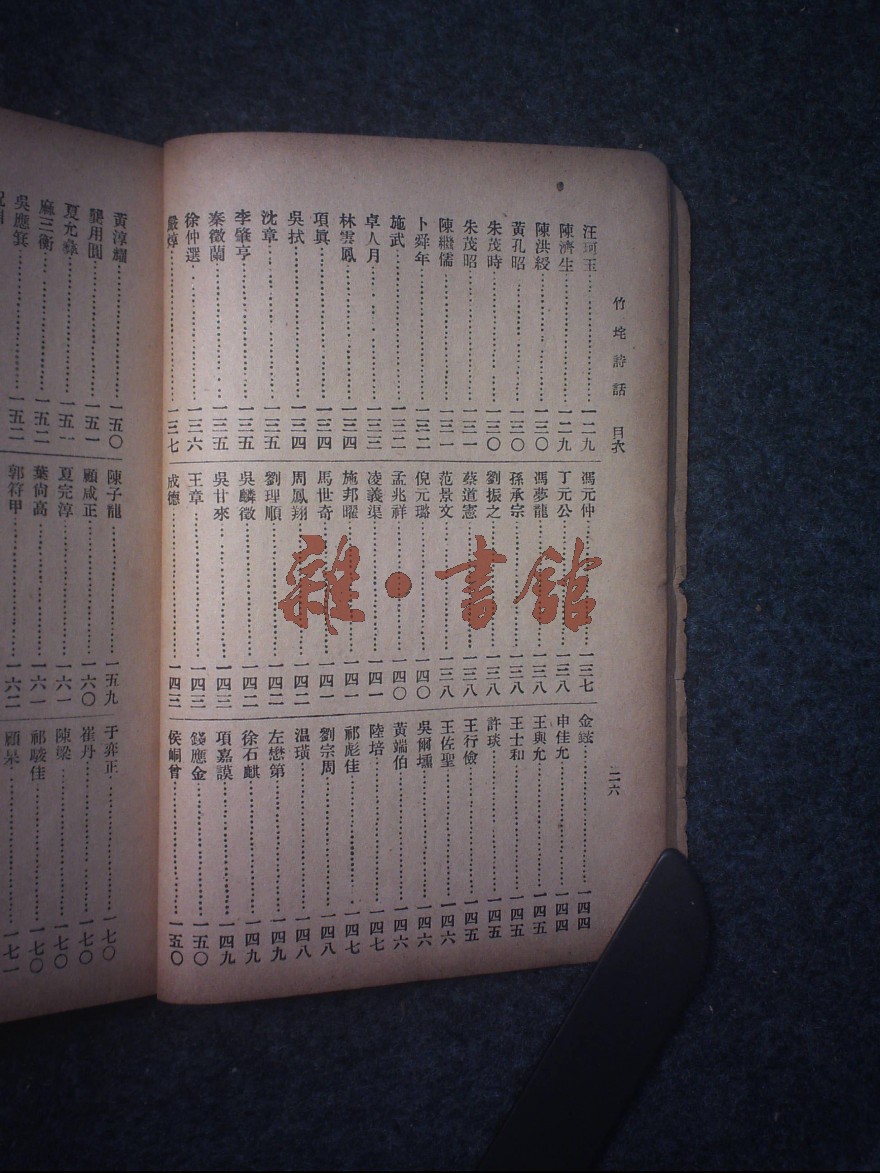 竹垞詩話 目次 二六
汪珂玉 一二九
陳濟生 一二九
陳洪綬 一三〇
黃孔昭 一三〇
朱茂時 一三〇
朱茂昭 一三一
陳繼儒 一三一
卜舜年 一三二
施武 一三二
卓人月 一三三
林雲鳳 一三四
項眞 一三四
吳拭 一三四
沈章 一三五
李肇亨 一三五
秦徵蘭 一三五
徐仲選 一三六
嚴焞 一三七
馮元仲 一三七
丁元公 一三八
馮夢龍 一三八
孫承宗 一三八
劉振之 一三八
蔡道憲 一三八
范景文 一三八
倪元璐 一四〇
孟兆祥 一四〇
凌義渠 一四一
施邦曜 一四一
馬世奇 一四一
周鳳翔 一四二
劉理順 一四二
吳麟徵 一四二
吳甘來 一四三
王章 一四三
成德 一四三
金鉉 一四四
申佳允 一四四
王與允 一四五
王士和 一四五
許琰 一四五
王行儉 一四五
王佐聖 一四六
吳爾壎 一四六
黃端伯 一四六
陸培 一四七
祁彪佳 一四七
劉宗周 一四八
溫璜 一四八
左懋第 一四九
徐石麒 一四九
項嘉謨 一四九
錢應金 一五〇
侯峒曾 一五〇
黃淳耀 一五〇
龔用圓 一五一
夏允彝 一五一
麻三衡 一五二
吳應箕 一五二
陳子龍 一五九
顧咸正 一六〇
夏完淳 一六一
葉尙高 一六一
郭符甲 一六二
于弈正 一七〇
崔丹 一七〇
陳梁 一七〇
祁駿佳 一七〇
顧杲 一七一
雜·書館